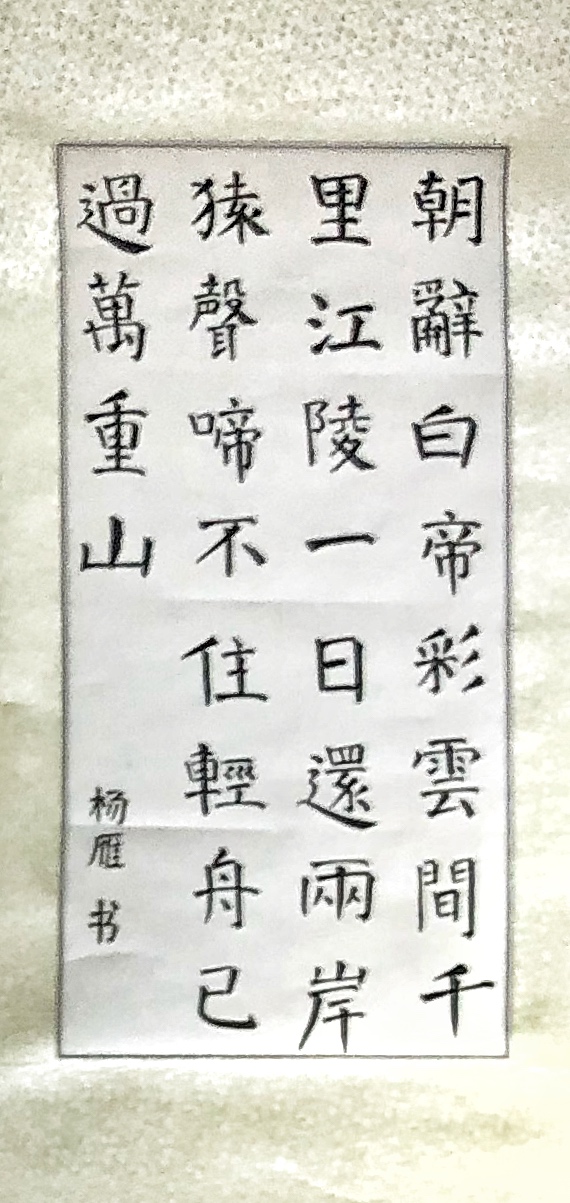 朝辭白帝彩雲間千
里江陵一日還兩岸
猿聲啼不住輕舟已
過萬重山
杨雁书